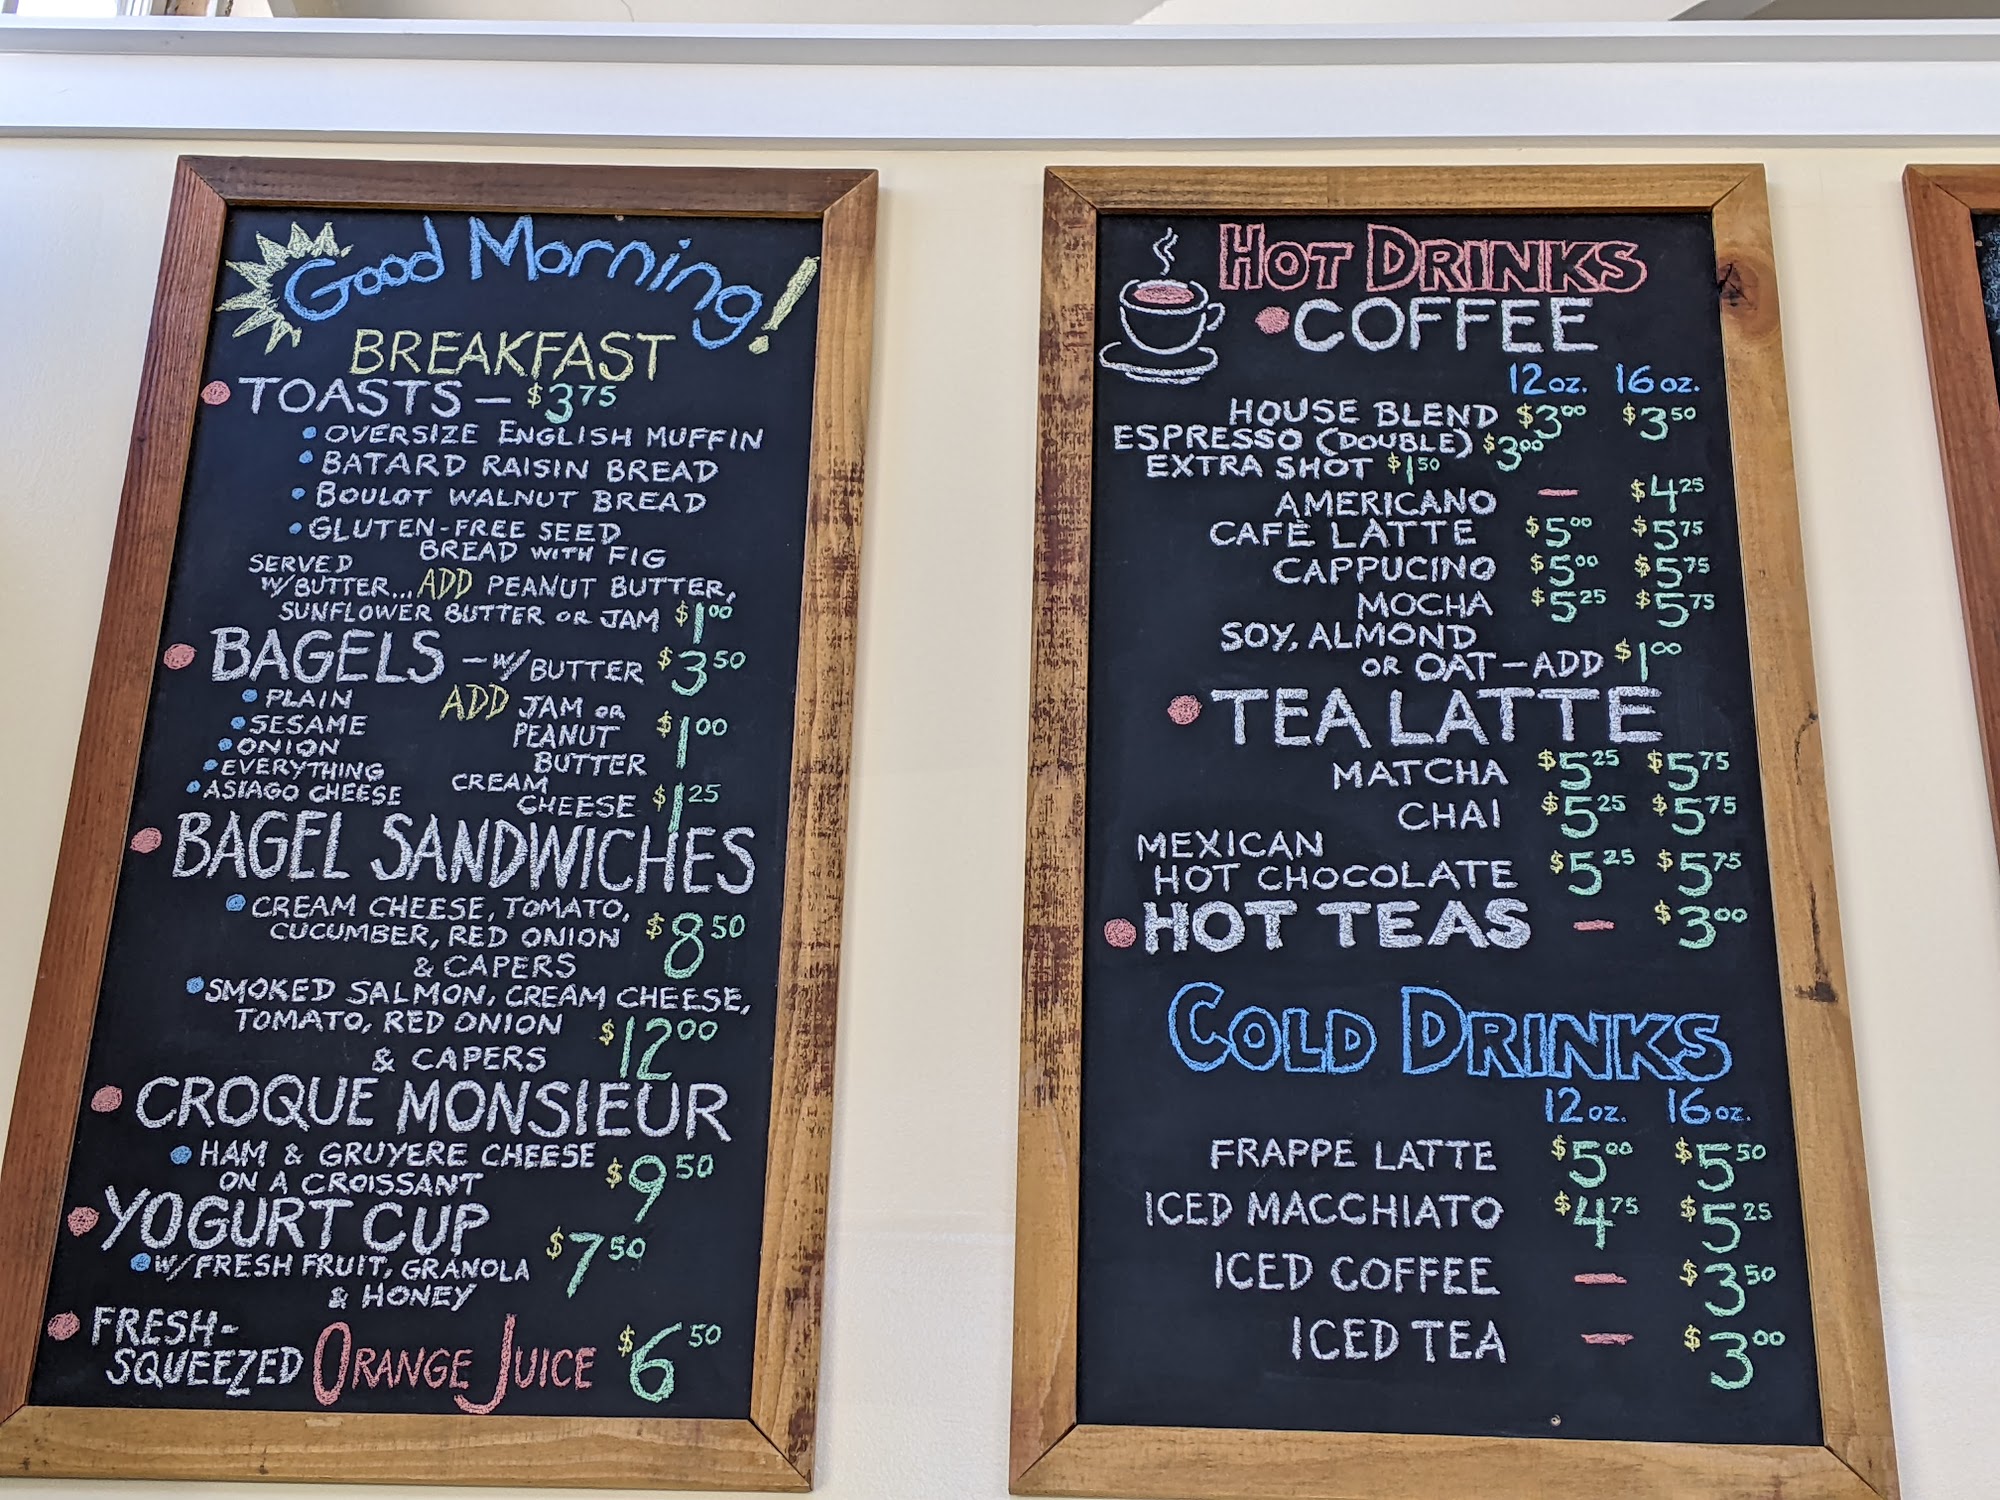 Good Morning!
BREAKFAST
TOASTS — $3.75
• OVERSIZE ENGLISH MUFFIN
• BATARD RAISIN BREAD
• BOULOT WALNUT BREAD
• GLUTEN-FREE SEED
BREAD WITH FIG
SERVED
W/BUTTER... ADD PEANUT BUTTER,
SUNFLOWER BUTTER OR JAM $1.00
BAGELS — W/ BUTTER $3.50
• PLAIN ADD JAM OR
• SESAME PEANUT $1.00
• ONION BUTTER
• EVERYTHING CREAM
• ASIAGO CHEESE CHEESE $1.25
BAGEL SANDWICHES
• CREAM CHEESE, TOMATO,
CUCUMBER, RED ONION $8.50
& CAPERS
• SMOKED SALMON, CREAM CHEESE,
TOMATO, RED ONION $12.00
& CAPERS
CROQUE MONSIEUR
• HAM & GRUYERE CHEESE $9.50
ON A CROISSANT
YOGURT CUP $7.50
• W/FRESH FRUIT, GRANOLA
& HONEY
FRESH-
SQUEEZED ORANGE JUICE $6.50
HOT DRINKS
COFFEE
12 oz. 16 oz.
HOUSE BLEND $3.00 $3.50
ESPRESSO (DOUBLE) $3.00
EXTRA SHOT $1.50
AMERICANO — $4.25
CAFÈ LATTE $5.00 $5.75
CAPPUCINO $5.00 $5.75
MOCHA $5.25 $5.75
SOY, ALMOND
OR OAT — ADD $1.00
TEA LATTE
MATCHA $5.25 $5.75
CHAI $5.25 $5.75
MEXICAN
HOT CHOCOLATE $5.25 $5.75
HOT TEAS — $3.00
COLD DRINKS
12 oz. 16 oz.
FRAPPE LATTE $5.00 $5.50
ICED MACCHIATO $4.75 $5.25
ICED COFFEE — $3.50
ICED TEA — $3.00